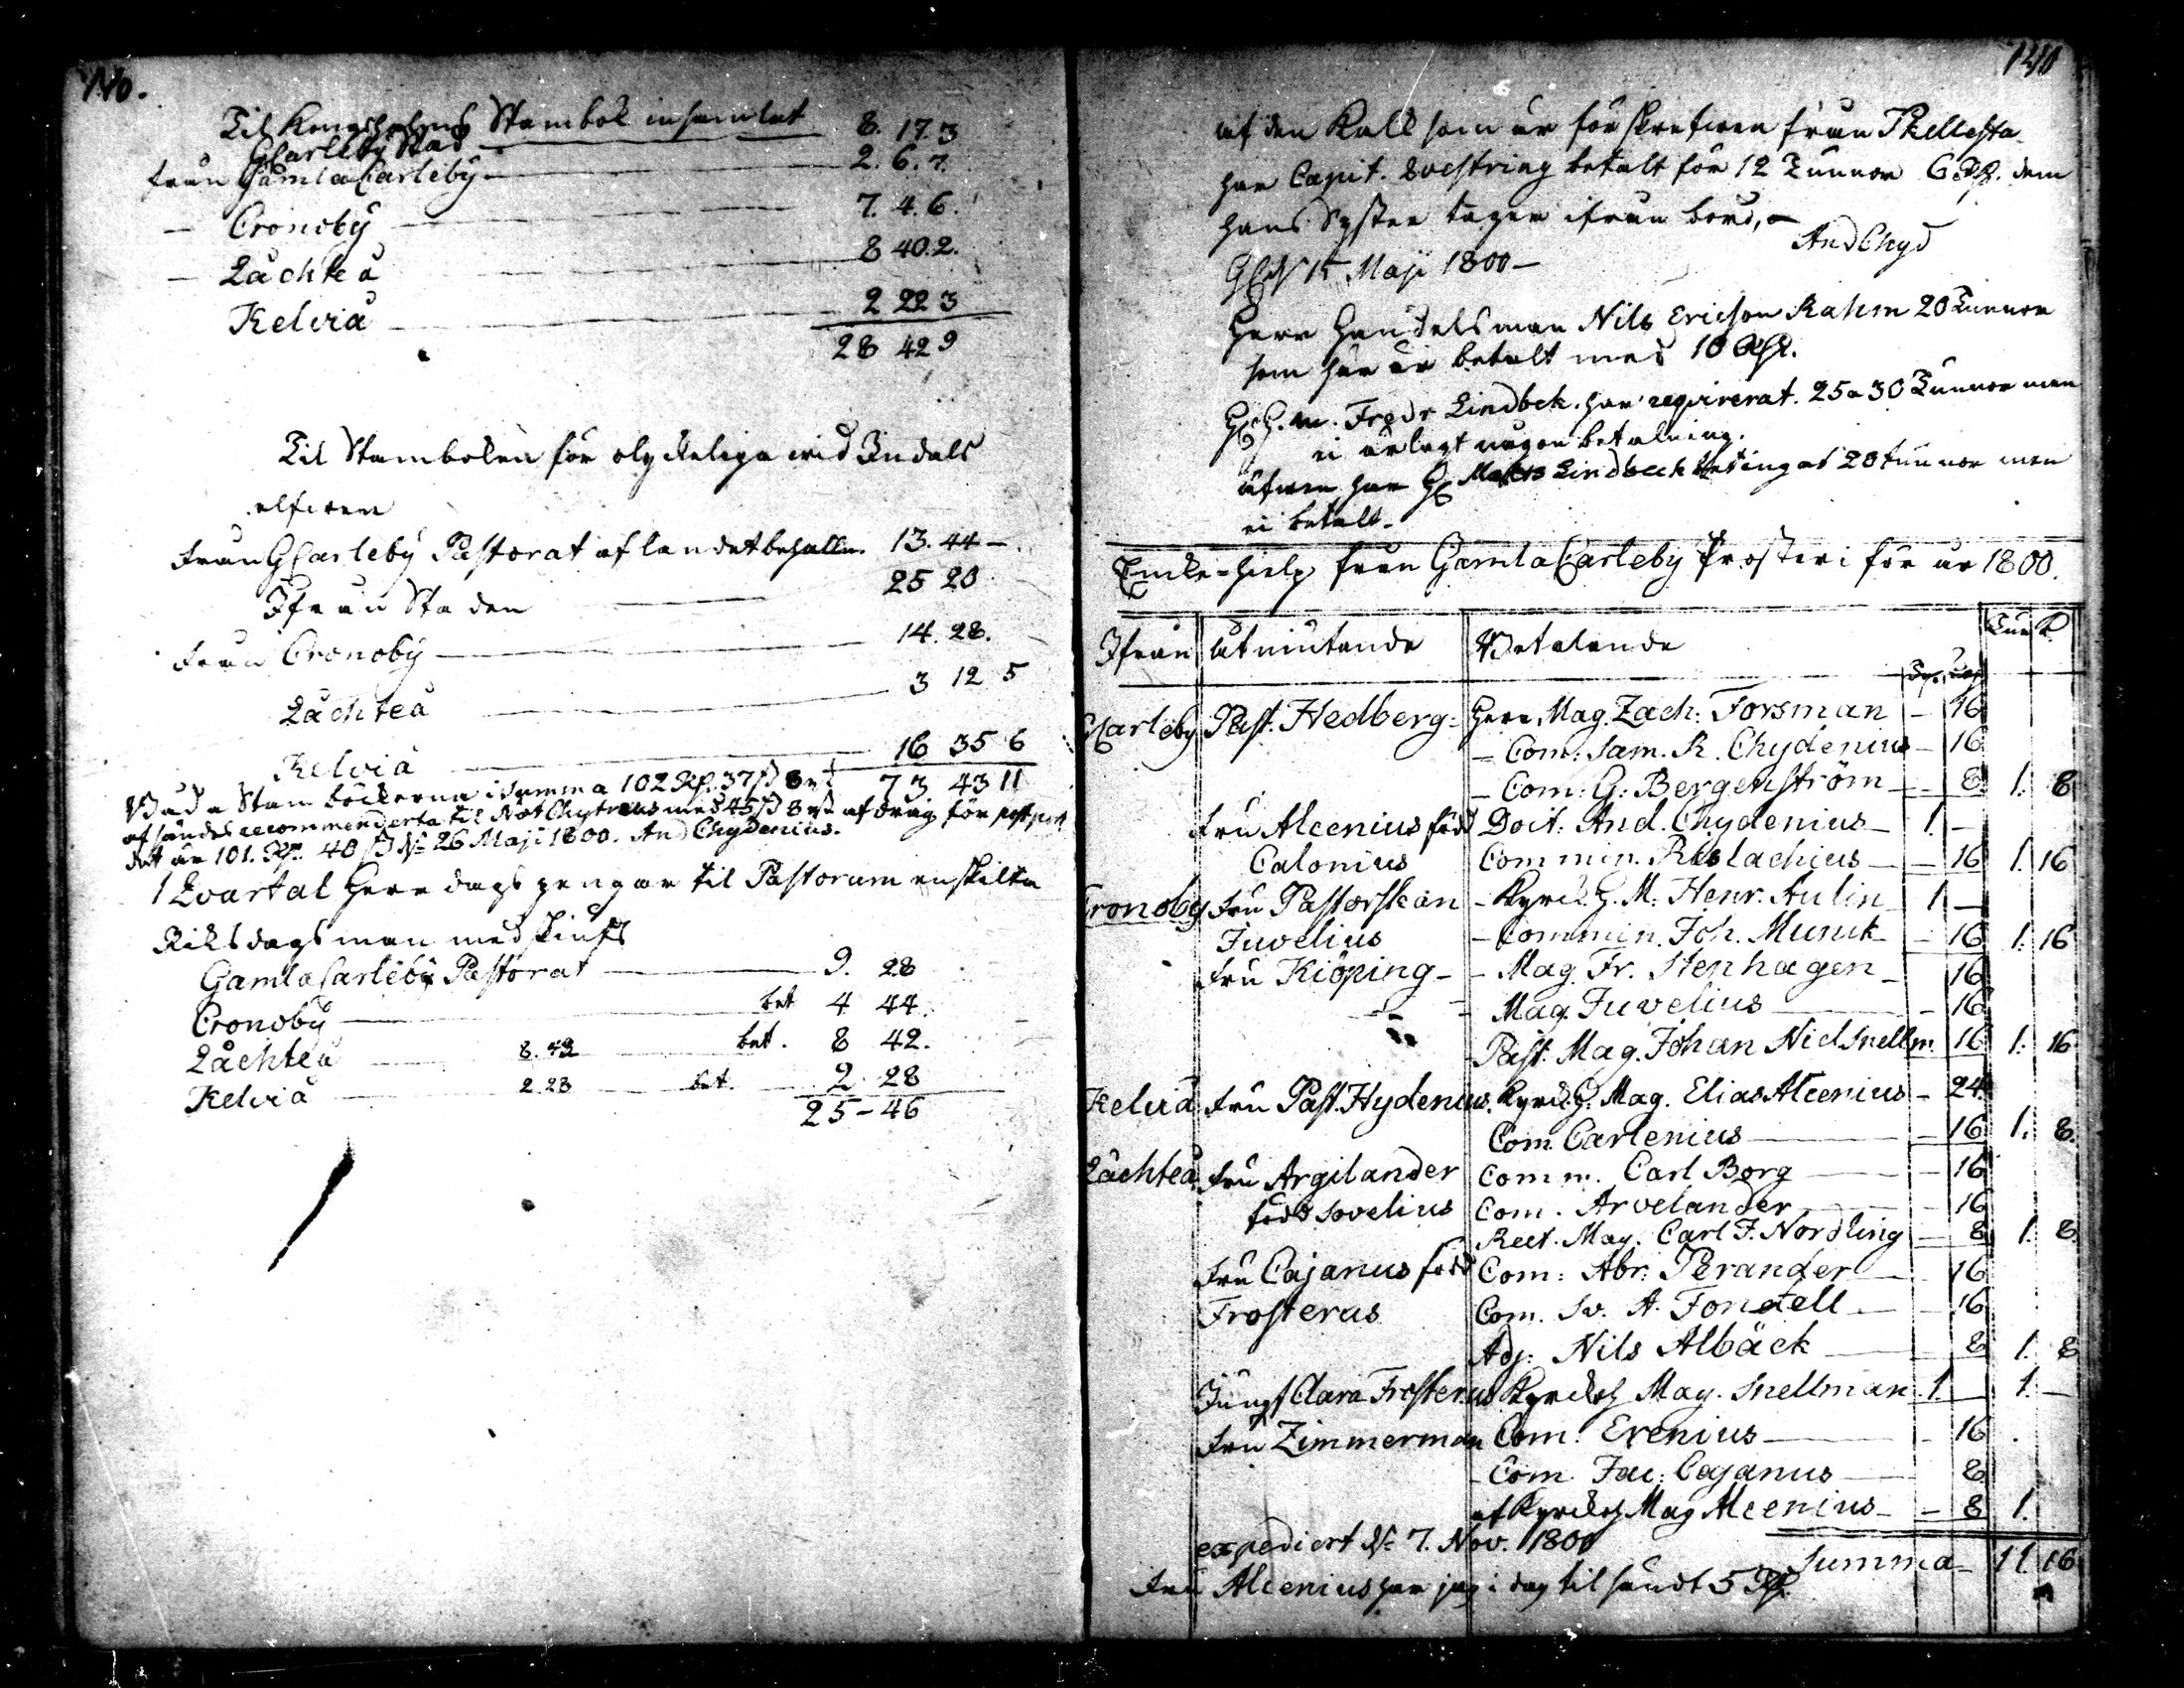 Til Kongsholms Stambok insamlat
GCarleby Stad 8. 17. 3
från Gamla Carleby — 2. 6. 7.
— Cronoby — 7. 4. 6.
— Låchteå — 8 40. 2.
Kelviå — 2 22 3
28 42 9
Til Stamboken för olyckeliga wid Indals
elfwen
från GCarleby Pastorat af landet behålln. 13. 44 —
Ifrån Staden — 25 20
från Cronoby — 14. 28.
Låchteå — 3 12 5
Kelviå — 16 35 6
73 43 11
Båda Stamböckerna i Summa 102 Rd. 37 s 8 rst
afsändes recommenderta til Not Chytræus med 45 s 8 rst afdrag för post port
det är 101. Rd. 40 s d. 26 Maji 1800. And Chydenius.
1 Qvartal Herredagspengar til Pastorum enskilta
Riksdagsman med skiuts
Gamla Carleby Pastorat — 9. 28
Cronoby — bet 4 44.
Låchteå — 8. 42 — bet. 8 42.
Kelviå — 2. 28 — bet. 2. 28
25 — 46
140
af den Kalk som är förskrefwen från Skellefta
har Capit. Qvestring betalt för 12 Tunnor 6 Rd. dem
hans Syster tagen ifrån bord, —
AndChyd
GCby 15 Maji 1800 —
Herr Handelsman Nils Ericson Rahm 20 Tunnor
som här är betalt med 10 Rd.
H. H. m. Fredr Lindbek. har requirerat. 25 a 30 Tunnor men
ei ärlagt någon betalning.
äfwen har H Mats Lindbeck betingat 20 tunnor men
ei betalt.
Enke-hielp från Gamla Carleby Prosteri för år 1800.
Ifrån Åtniutande Betalande Tun K.
GCarleby Past. Hedberg = Herr Mag. Zach: Forsman — 16
— Com: Sam. R. Chydenius — 16
— Com: G: Bergenström — 8 1. 8
Fru Alcenius född Doct: And. Chydenius — 1 —
Calonius Commin. Rislachius — 16 1. 16
Cronoby Fru Pastorskan — Kyrck H. M. Henr. Aulin — 1 —
Juvelius — Commin. Joh. Munck — 16 1. 16
Fru Kiöping — — Mag. Fr. Stenhagen — 16
— Mag. Juvelius — 16
Past. Mag. Johan Nic Snellm. 16 1. 16
Kelviå Fru Past. Hydenius. Kyrck H. Mag. Elias Alcenius — 24
Com. Carlenius — 16 1. 8.
Låchteå Fru Argilander Comm. Carl Borg — 16
född Sovelius Com. Arvelander — 16
Rect. Mag. Carl F. Nordling — 8 1. 8.
Fru Cajanus född Com: Abr: Perander — 16
Frosterus Com. Sv. A. Fontell — 16
Adj: Nils Albäck — 8 1. 8
Jungf Clara Frosterus Kyrckoh Mag. Snellman 1. — 1. —
Fru Zimmerman Com: Erenius — 16
— Com Jac: Cajanus — 8
af Kyrckoh Mag Alcenius — 8 1.
expediert d. 7. Nov. 1800
Summa — 11 16
Fru Alcenius har jag i dag tilsändt 5 Rd.